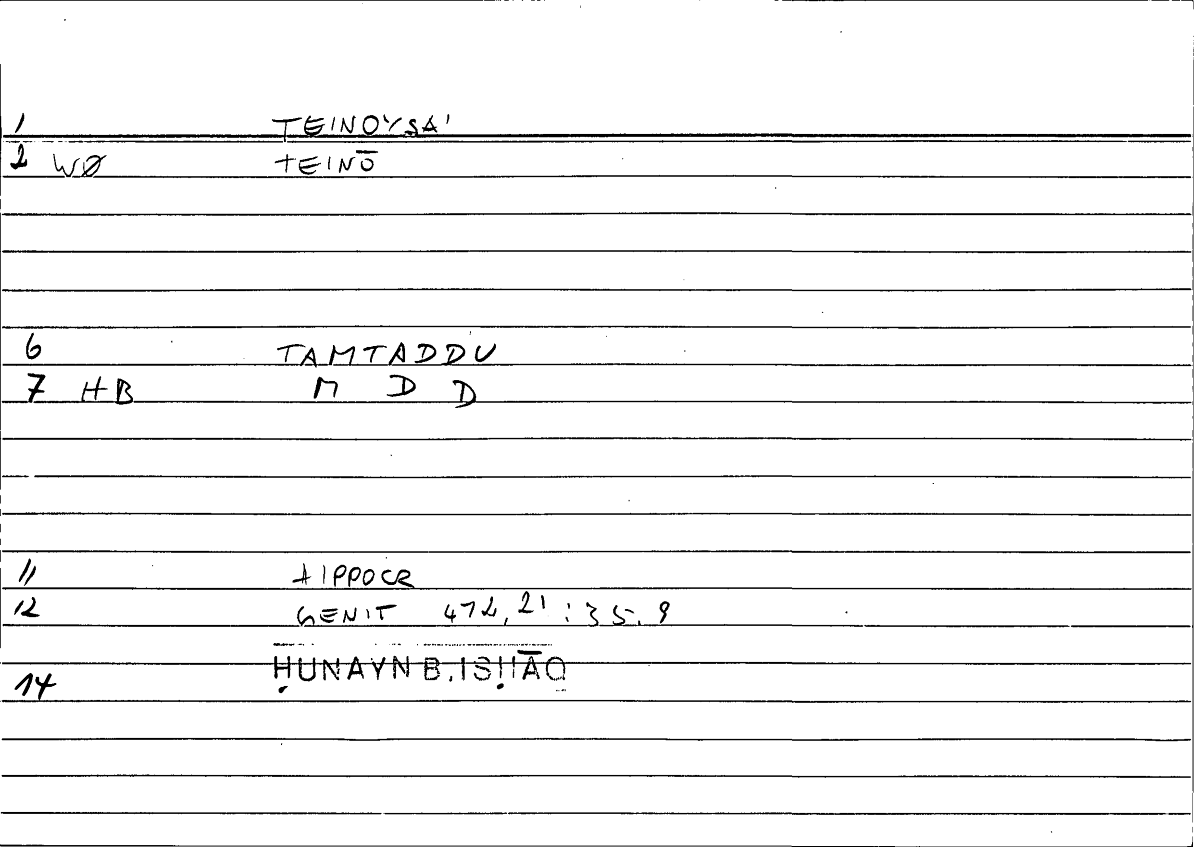 1 TEINOYSAI
2 WØ TEINŌ
6 TAMTADDU
7 HB M D D
11 HIPPOCR
12 GENIT 472, 21 : 35. 9
ḤUNAYN B. ISḤĀQ
14